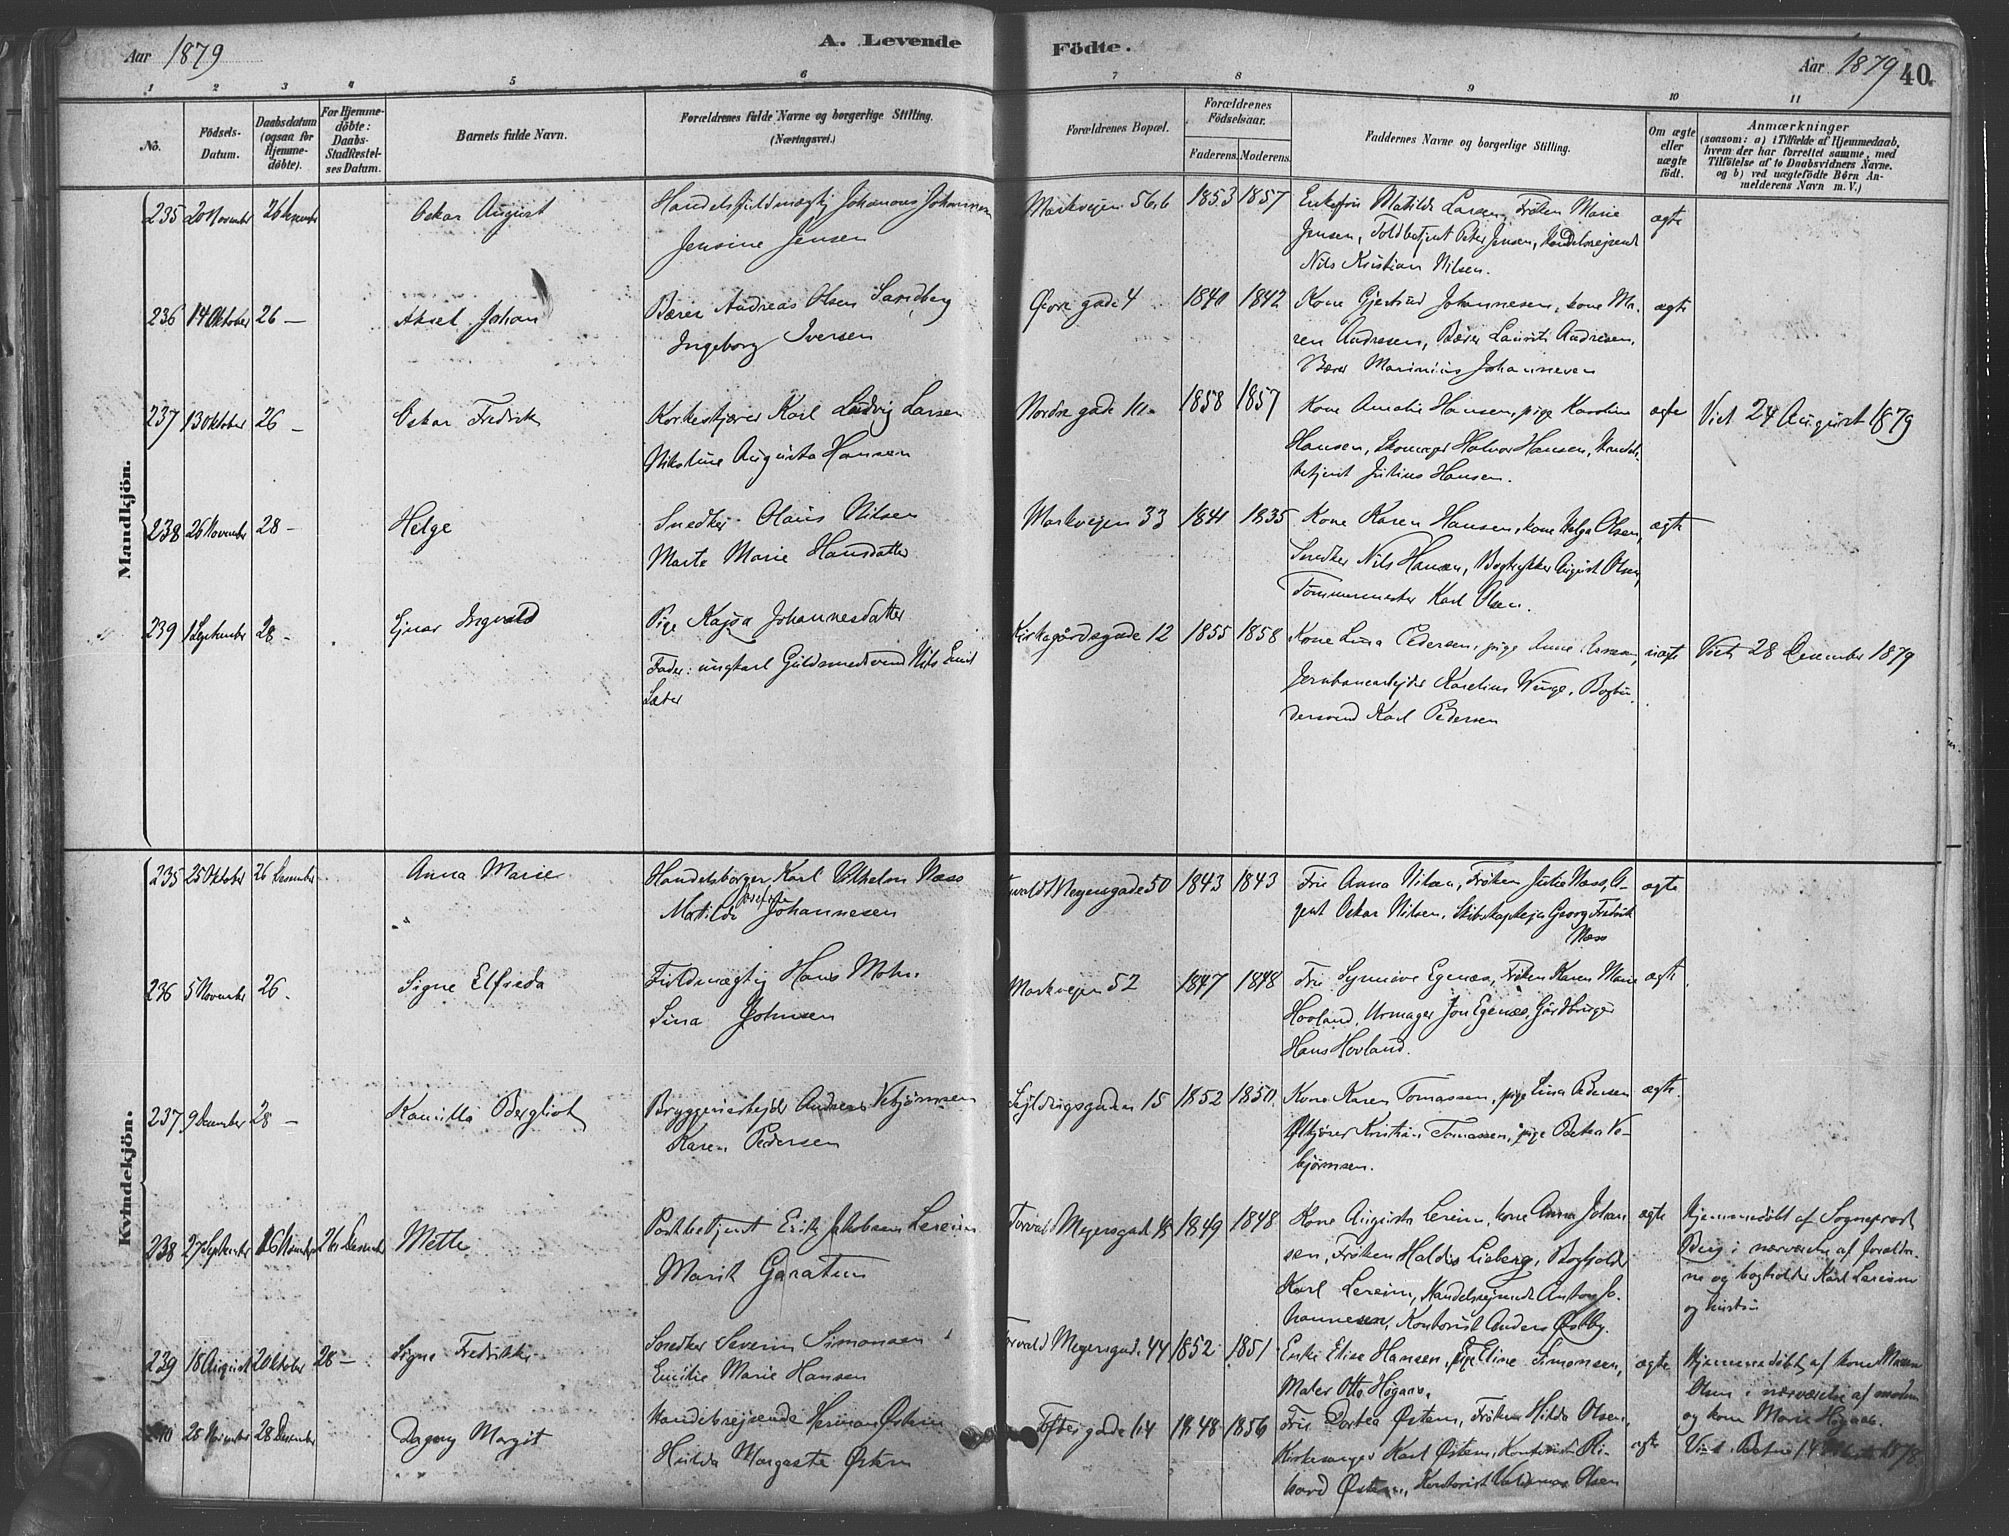 Aar 1879
A. Levende
Födte.
Aar 1879
40.
1 2 3 4 5 6 7 8 9 10 11
No.
Födsels-
Datum.
Daabsdatum
(ogsaa for
Hjemme-
döbte).
For Hjemme-
döbte:
Daabs-
Stadfæstel-
ses Datum.
Barnets fulde Navn.
Forældrenes fulde Navne og borgerlige Stilling.
(Næringsvei.)
Forældrenes Bopæl.
Forældrenes
Födselsaar.
Faderens. Moderens.
Faddernes Navne og borgerlige Stilling.
Om ægte
eller
uægte
født.
Anmærkninger
(saasom: a) i Tilfælde af Hjemmedaab,
hvem der har forrettet samme, med
Tilföielse af to Daabsvidners Navne.
og b) ved uægtefödte Börn An-
melderens Navn m. V.)
Mandkjön.
235 20 November 26 Desember Oskar August
Handelsfuldmægtig Johannes Johannesen
Jensine Jensen
Markvejen 56b 1853 1857
Enkefru Matilde Larsen, Frøken Marie
Jensen, Toldbetjent Peter Jensen, Handelsrejsende
Nils Kristian Nilsen.
ægte
236 14 Oktober 26 — Aksel Johan
Bærer Andreas Olsen Sandberg
Ingeborg Iversen
Øvre gade 4 1840 1842
Kone Gjertrud Johannesen, kone Ma-
ren Andresen, Bærer Laurits Andresen,
Bærer Marinius Johannesen
ægte
237 13 Oktober 26 — Oskar Fredrik
Korkeskjærer Karl Ludvig Larsen
Nikoline Augusta Hansen
Nordre gade 1858 1857
Kone Amalie Hansen, pige Karoline
Hansen, Skomager Halvor Hansen,
betjent Julius Hansen.
ægte
Viet 24 August 1879
238 26 November 28 — Helge
Snedker Olaus Nilsen
Marte Marie Hansdatter
Markvejen 33 1841 1835
Kone Karen Hansen, kone Helga Olsen,
Snedker Nils Hansen, Bogtrykker August Olsen,
Tømmermester Karl Olsen.
ægte
239 1 September 28 — Ejnar Ingvald
Pige Kajsa Johannesdatter
Fader: ungkarl Guldsmedsvend Nils Emil
Sæter
Kirkegårdsgade 12 1855 1858
Kone Lina Pedersen, pige Anne
Jernbanearbejder Karelius Winge, Bogbin-
dersvend Karl Pedersen
uægte
Viet 28 Desember 1879
Kvindekjön.
235 25 Oktober 26 Desember Anna Marie
Handelsborger Karl Vilhelm Næss
Josefine
Matilde Johannesen
Torvald Meyersgade 50 1843 1843
Fru Anna Nilsen, Frøken Julie Næss, A-
gent Oskar Nilsen, Skibskaptejn Georg Fredrik
Næss
ægte
236 5 November 26. Signe Elfrida
Fuldmægtig Hans Mohr
Sina Johnsen
Markvejen 52 1847 1848
Fru Synneve Egenæs, Frøken Karen Marie
Hovland, Urmager Jon Egenæs, Gårdbruger
Hans Hovland.
ægte
237 9 Desember 28 — Kamilla Bergliot
Bryggeriarbejder Andreas Vebjørnsen
Karen Pedersen
15 1852 1850
Kone Karen Tomassen, pige Lina Pedersen
Ølkjører Kristian Tomassen, pige Petra Ve-
bjørnsen.
ægte.
238 27 September 16 November 26 Desember Mette
Postbetjent Erik Jakobsen Lereim
Marit Garatun
Torvald Meyersgade 1849 1848
Kone Augusta Lereim, kone Anna Johan
sen, Frøken Haldis Lieberg, Bogholder
Karl Lereim, Handelsrejsende Anton Jo-
hannesen, Kontorist Anders Østby.
ægte
Hjemmedøbt af Sogneprest
Berg i nærværelse af foreldre-
ne og bogholder Karl Lereim
og hustru
239 18 August 2 Oktober 28 — Signe Fredrikke
Snedker Severin Simonsen
Emilie Marie Hansen
Torvald Meyersgade 44 1852 1851
Enke Elise Hansen, pige Eline Simonsen,
Maler Otto Høgaas.
ægte
Hjemmedøbt af kone Maren
Olsen i nærværelse af moderen
og kone Marie Høgaas.
240 28 November 28 Desember Dagny Margit
Handelsrejsende Herman Østern
Hulda Margrete Østern
Toftesgade 14 1848 1856
Fru Dortea Østern, Frøken Hilda Olsen,
Kirkesanger Karl Østern, Kontorist Ri-
kard Østern, Kontorist Valdemar Olsen
ægte
Viet 1878.